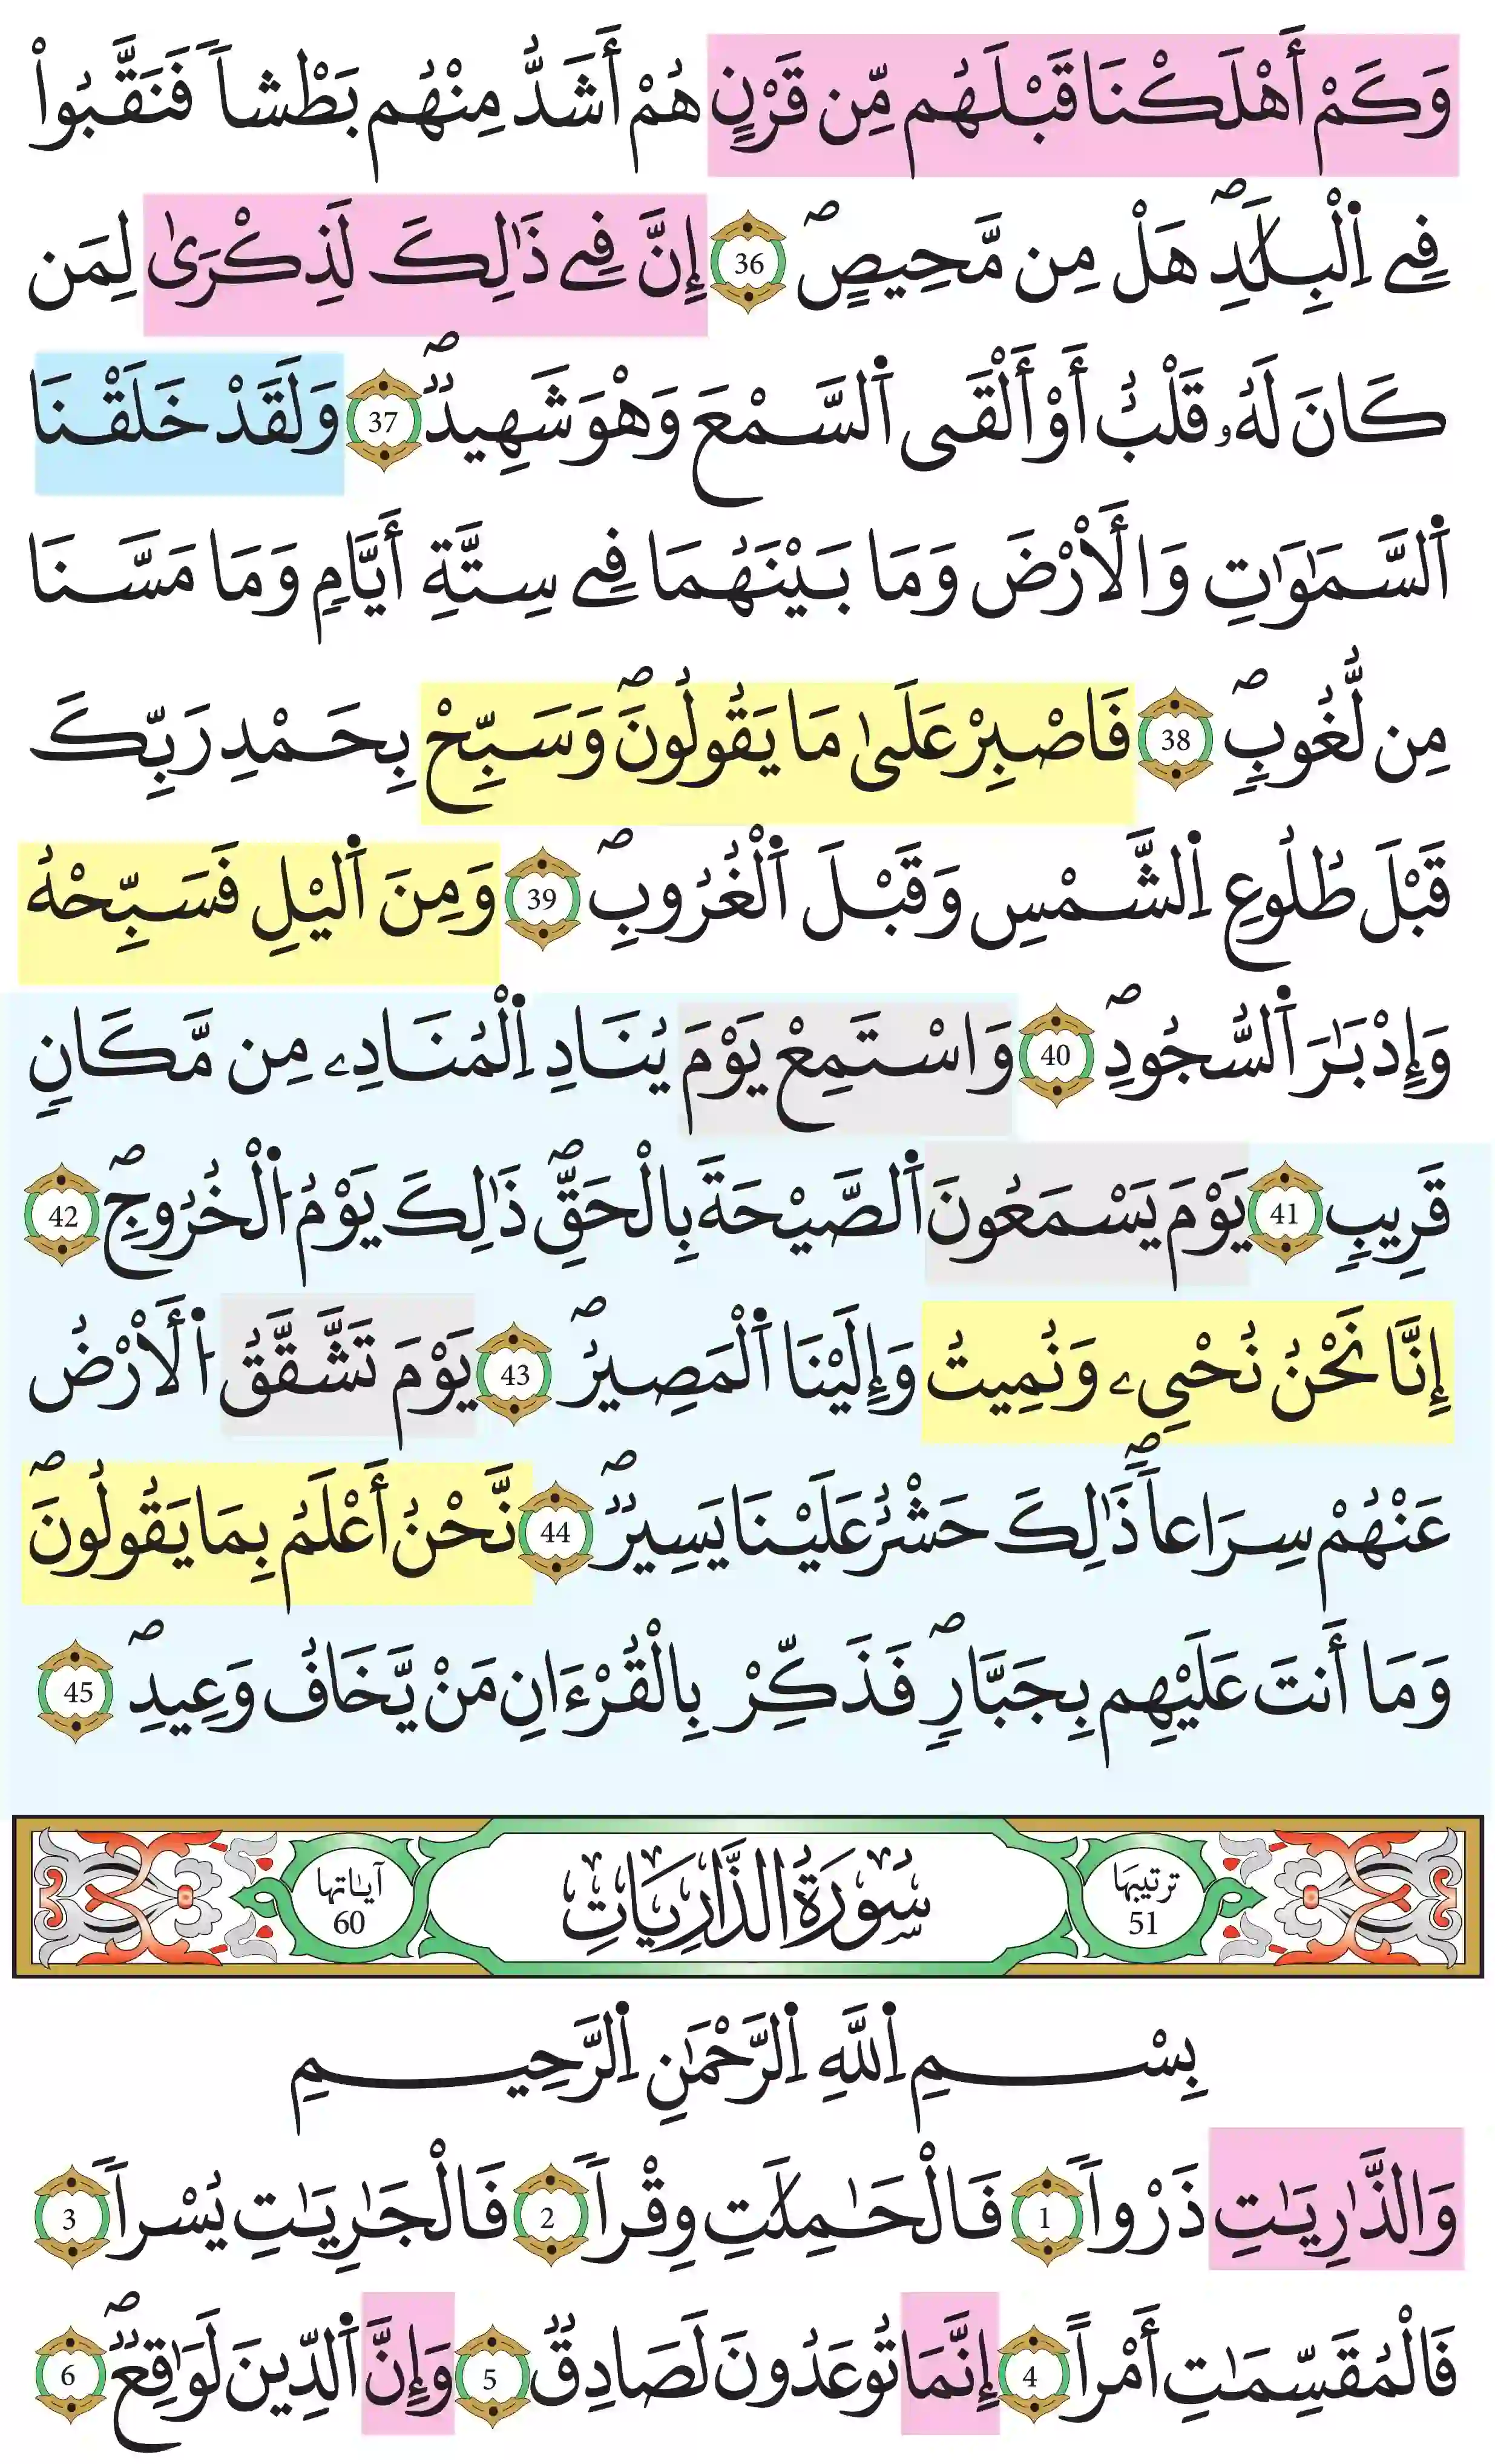 وَكَمْ أَهْلَكْنَا قَبْلَهُم مِّن قَرْنٍ هُمْ أَشَدُّ مِنْهُم بَطْشاً فَنَقَّبُواْ
فِے اِ۬لْبِلَٰدِۖ هَلْ مِن مَّحِيصٍۖ 36 إِنَّ فِے ذَٰلِكَ لَذِكْرَىٰ لِمَن
كَانَ لَهُۥ قَلْبٌ أَوْ أَلْقَى اَ۬لسَّمْعَ وَهْوَ شَهِيدٌۖ 37 وَلَقَدْ خَلَقْنَا
اَ۬لسَّمَٰوَٰتِ وَالْأَرْضَ وَمَا بَيْنَهُمَا فِے سِتَّةِ أَيَّامٍ وَمَا مَسَّنَا
مِن لُّغُوبٍۖ 38 فَاصْبِرْ عَلَىٰ مَا يَقُولُونَۖ وَسَبِّحْ بِحَمْدِ رَبِّكَ
قَبْلَ طُلُوعِ اِ۬لشَّمْسِ وَقَبْلَ اَ۬لْغُرُوبِۖ 39 وَمِنَ اَ۬ليْلِ فَسَبِّحْهُ
وَإِدْبَٰرَ اَ۬لسُّجُودِۖ 40 وَاسْتَمِعْ يَوْمَ يُنَادِ اِ۬لْمُنَادِۦ مِن مَّكَانٍ
قَرِيبٍ 41 يَوْمَ يَسْمَعُونَ اَ۬لصَّيْحَةَ بِالْحَقِّۖ ذَٰلِكَ يَوْمُ اُ۬لْخُرُوجِۖ 42
إِنَّا نَحْنُ نُحْيِۦ وَنُمِيتُ وَإِلَيْنَا اَ۬لْمَصِيرُۖ 43 يَوْمَ تَشَّقَّقُ اُ۬لْأَرْضُ
عَنْهُمْ سِرَاعاًۖ ذَٰلِكَ حَشْرٌ عَلَيْنَا يَسِيرٌۖ 44 نَّحْنُ أَعْلَمُ بِمَا يَقُولُونَۖ
وَمَا أَنتَ عَلَيْهِم بِجَبَّارٍۖ فَذَكِّرْ بِالْقُرْءَانِ مَنْ يَّخَافُ وَعِيدِۖ 45
ترتيبها 51 سُورَةُ الذَّارِيَاتِ آياتها 60
بِسْمِ اِ۬للَّهِ اِ۬لرَّحْمَٰنِ اِ۬لرَّحِيمِ
وَالذَّٰرِيَٰتِ ذَرْواً 1 فَالْحَٰمِلَٰتِ وِقْراً 2 فَالْجَٰرِيَٰتِ يُسْراً 3
فَالْمُقَسِّمَٰتِ أَمْراً 4 إِنَّمَا تُوعَدُونَ لَصَادِقٌ 5 وَإِنَّ اَ۬لدِّينَ لَوَٰقِعٌۖ 6